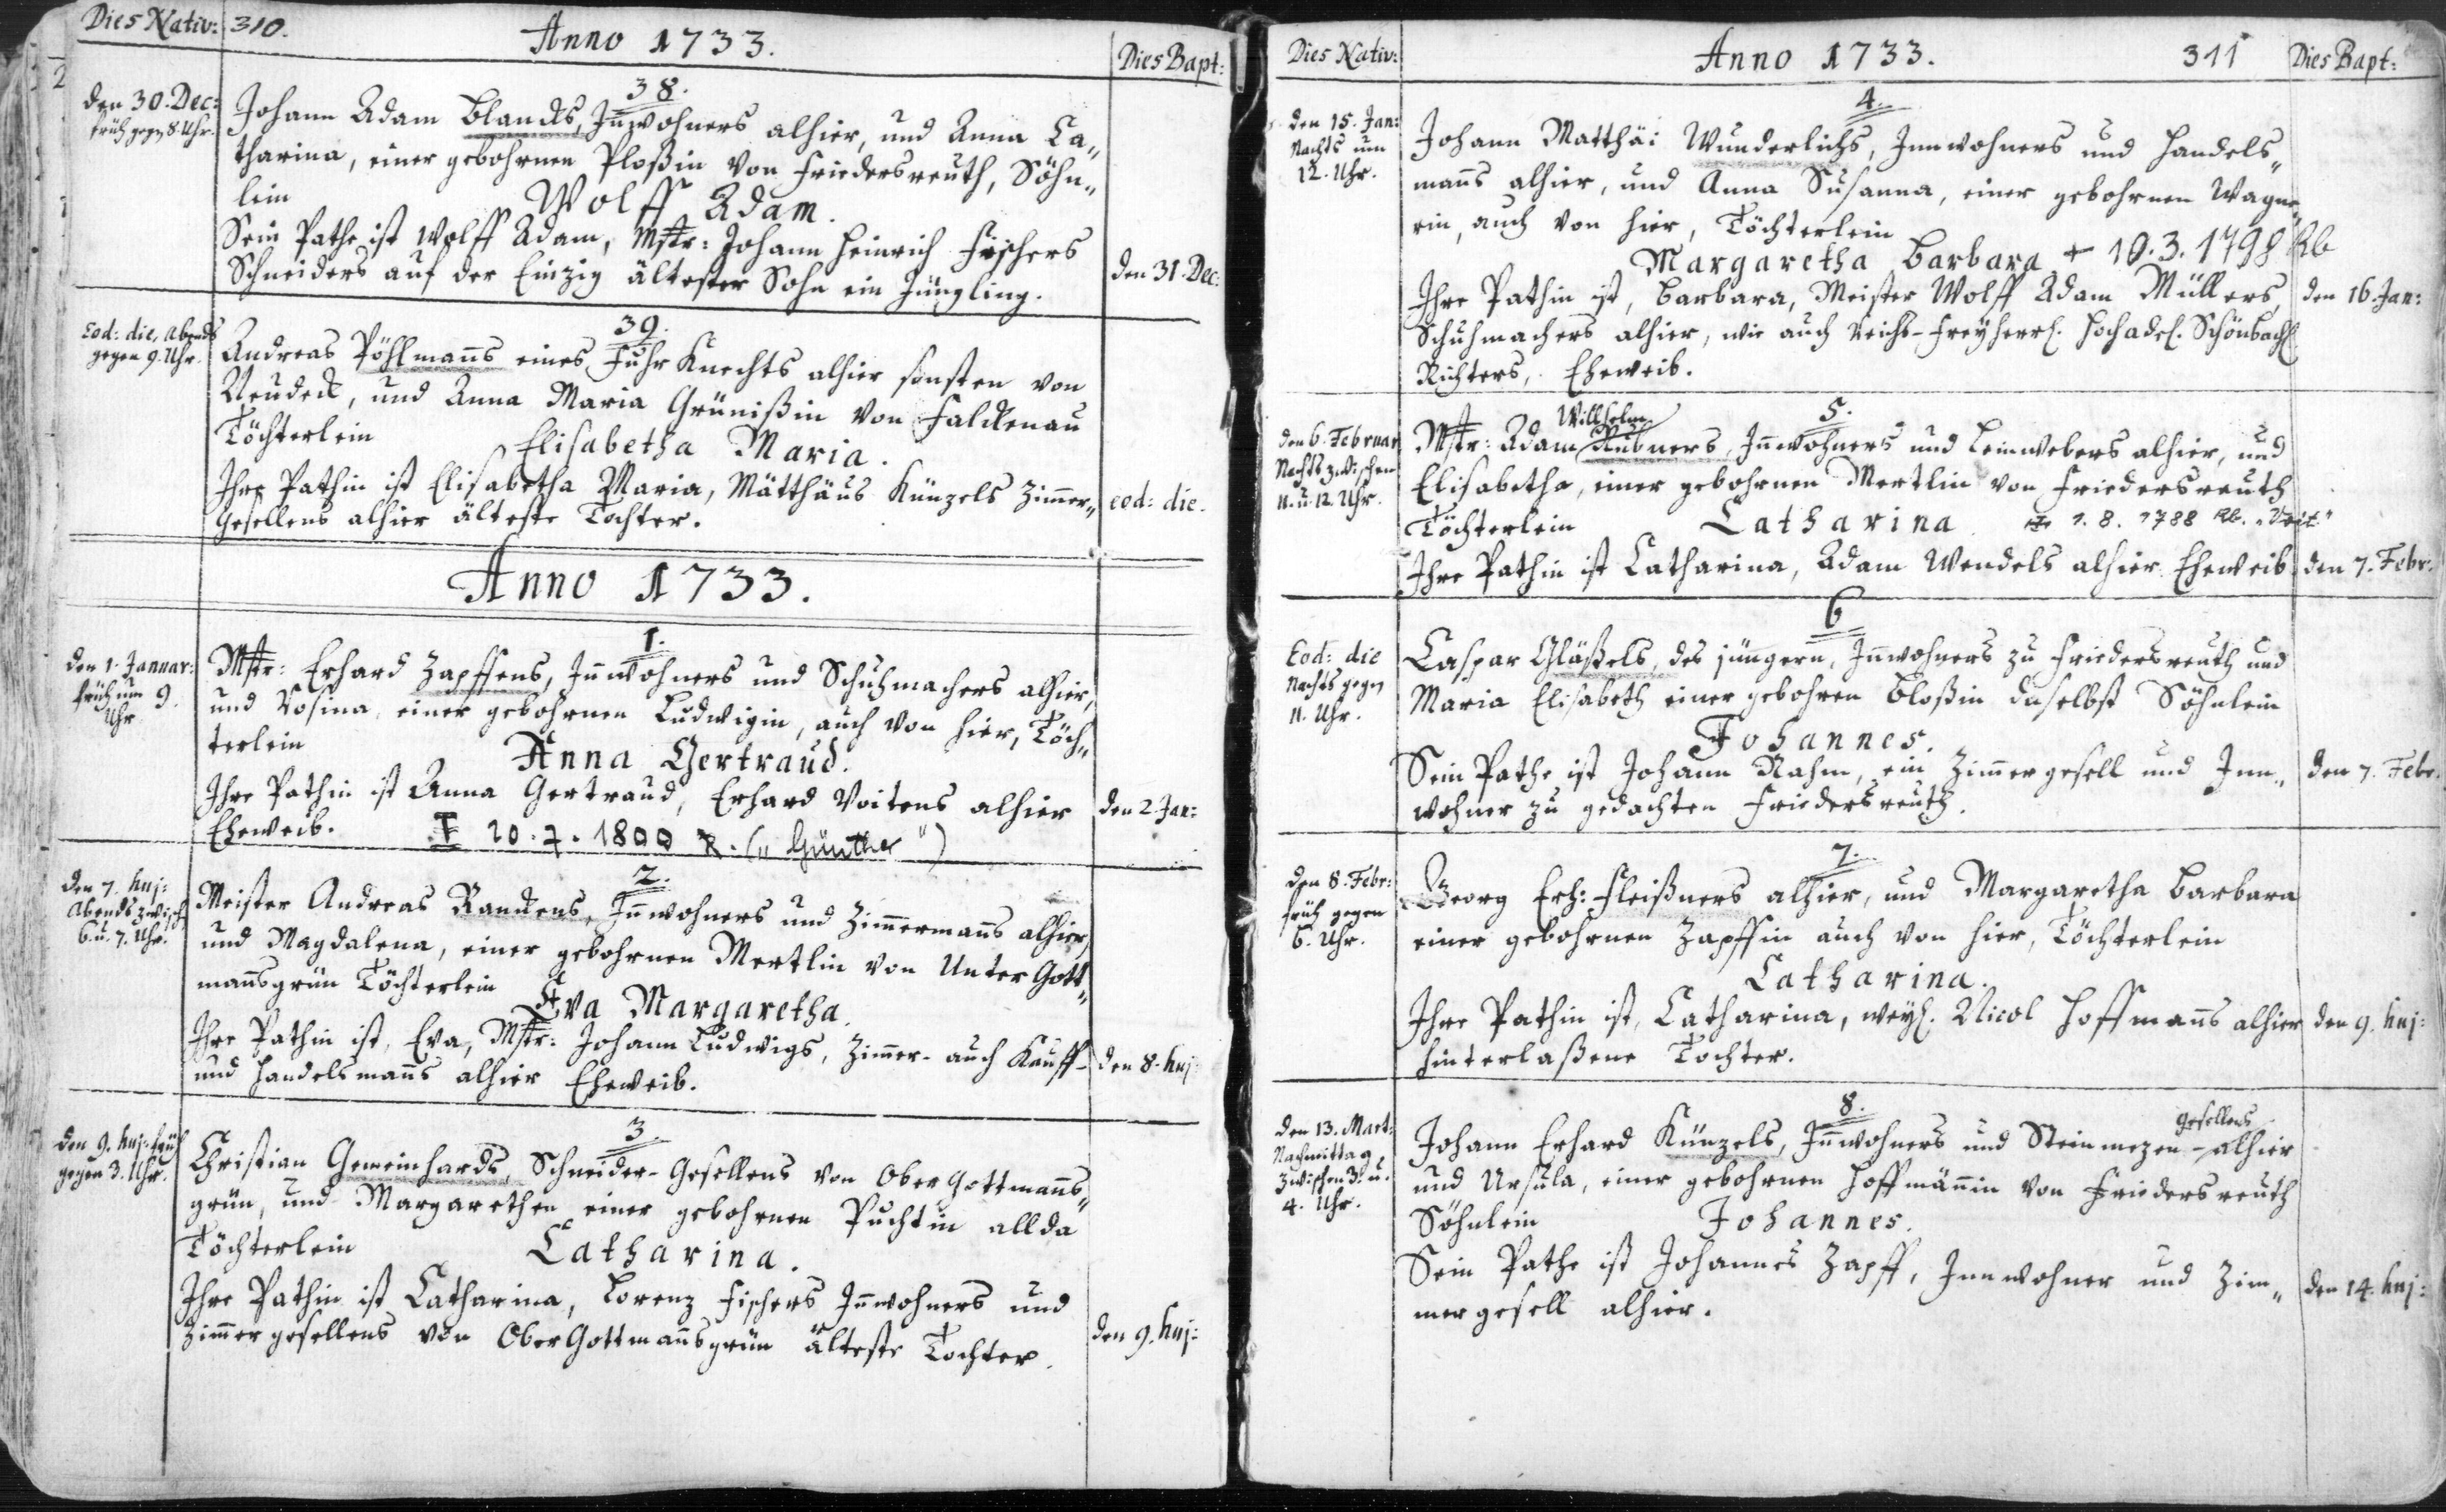 Dies Nativ: 310. Anno 1733. Dies Bapt:
38.
den 30. Dec: früh gegen 8. Uhr.
Johann Adam Blancks, Inwohners alhier, und Anna Ca„
tharina, einer gebohrnen Ploßin von Friedersreuth, Söhn„
lein
Wolff Adam.
Sein Pathe ist Wolff Adam, Mstr: Johann Heinrich Fischers
Schneiders auf der Einzig ältester Sohn ein Jüngling.
den 31. Dec:
39.
Eod: die, Abends
gegen 9. Uhr.
Andreas Pöhlmanns eines Fuhr Knechts alhier sonsten von
Neudeck, und Anna Maria Grünißin von Falckenau
Töchterlein
Elisabetha Maria.
Ihre Pathin ist Elisabetha Maria, Matthäus Künzels Zimmer„
Gesellens alhier älteste Tochter.
eod: die.
Anno 1733.
1.
den 1. Januar:
früh um 9.
Uhr
Mstr: Erhard Zapffens, Inwohners und Schuhmachers alhier,
und Rosina einer gebohrnen Ludwigin, auch von hier, Töch„
terlein
Anna Gertraud.
Ihre Pathin ist Anna Gertraud, Erhard Voitens alhier
Eheweib.
den 2. Jan:
† 20. 7. 1800 R. („Günther")
2.
den 7. huj:
Abends zwisch
6. u. 7. Uhr.
Meister AndreasRanckens, Inwohners und Zimmermanns alhier,
und Magdalena, einer gebohrnen Mertlin von Unter Gott„
mannsgrün Töchterlein
Eva Margaretha.
Ihre Pathin ist, Eva, Mstr: Johann Ludwigs, Zimmer- auch Kauff-
und Handelsmanns alhier Eheweib.
den 8. huj:
3
den 9. huj: früh
gegen 3. Uhr.
Christian Gemeinhards, Schneider-Gesellens von Ober Gottmanns„
grün, und Margarethen einer gebohrnen Puchtin allda
Töchterlein
Catharina.
Ihre Pathin ist Catharina, Lorenz Fischers Inwohners und
Zimmergesellens von Ober Gottmannsgrün älteste Tochter.
den 9. huj:
Dies Nativ: Anno 1733. 311 Dies Bapt:
4.
den 15. Jan:
Nachts um
12. Uhr.
Johann Matthäi Wunderlichs, Innwohners und Handels„
manns alhier, und Anna Susanna, einer gebohrnen Wagne„
rin, auch von hier, Töchterlein
Margaretha Barbara + 10. 3. 1798 Rb
Ihre Pathin ist, Barbara, Meister Wolff Adam Müllers,
Schuhmachers alhier, wie auch Reichs-Freyherrl. Hochadel. Schönbachl.
Richters, Eheweib.
den 16. Jan:
5.
den 6. Februar
Nachts zwischen
11. u. 12. Uhr.
Willhelm
Mstr: Adam Rubners, Inwohners und Leinwebers alhier, und
Elisabetha, einer gebohrnen Mertlin von Friedersreuth
Töchterlein
Catharina + 1. 8. 1788 Rb. „Veit"
Ihre Pathin ist Catharina, Adam Wendels alhier Eheweib
den 7. Febr:
6
Eod: die
Nachts gegen
11. Uhr.
Caspar Gläßels, des jüngern, Inwohners zu Friedersreuth und
Maria Elisabeth einer gebohren Bloßin daselbst Söhnlein
Johannes.
Sein Pathe ist Johann Rahm, ein Zimmergesell und Inn„
wohner zu gedachten Friedersreuth.
den 7. Febr.
7.
den 8. Febr:
früh gegen
6. Uhr.
Georg Erh: Fleißners alhier, und Margaretha Barbara
einer gebohrnen Zapffin auch von hier, Töchterlein
Catharina.
Ihre Pathin ist, Catharina, weyl. Nicol Hoffmanns alhier
hinterlaßene Tochter.
den 9. huj:
8.
den 13. Mart:
Nachmittag
zwischen 3. u.
4. Uhr.
gesellens
Johann Erhard Künzels, Inwohners und Steinmezen-alhier
und Ursula, einer gebohrnen Hoffmännin von Friedersreuth
Söhnlein
Johannes.
Sein Pathe ist Johannes Zapff, Innwohner und Zim„
mergesell alhier.
den 14. huj: